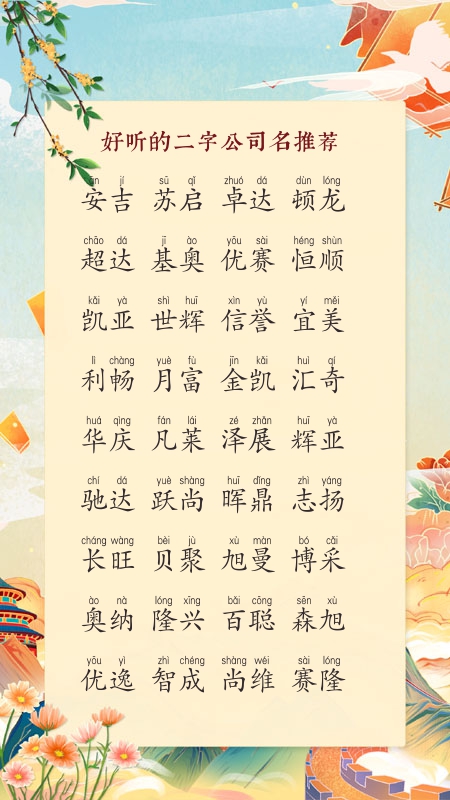 好听的二字公司名推荐
ān jí sū qǐ zhuó dá dùn lóng
安吉 苏启 卓达 顿龙
chāo dá jī ào yōu sài héng shùn
超达 基奥 优赛 恒顺
kǎi yà shì huī xìn yù yí měi
凯亚 世辉 信誉 宜美
lì chàng yuè fù jīn kǎi huì qí
利畅 月富 金凯 汇奇
huá qìng fán lái zé zhǎn huī yà
华庆 凡莱 泽展 辉亚
chí dá yuè shàng huī dǐng zhì yáng
驰达 跃尚 晖鼎 志扬
cháng wàng bèi jù xù màn bó cǎi
长旺 贝聚 旭曼 博采
ào nà lóng xīng bǎi cōng sēn xù
奥纳 隆兴 百聪 森旭
yōu yì zhì chéng shàng wéi sài lóng
优逸 智成 尚维 赛隆